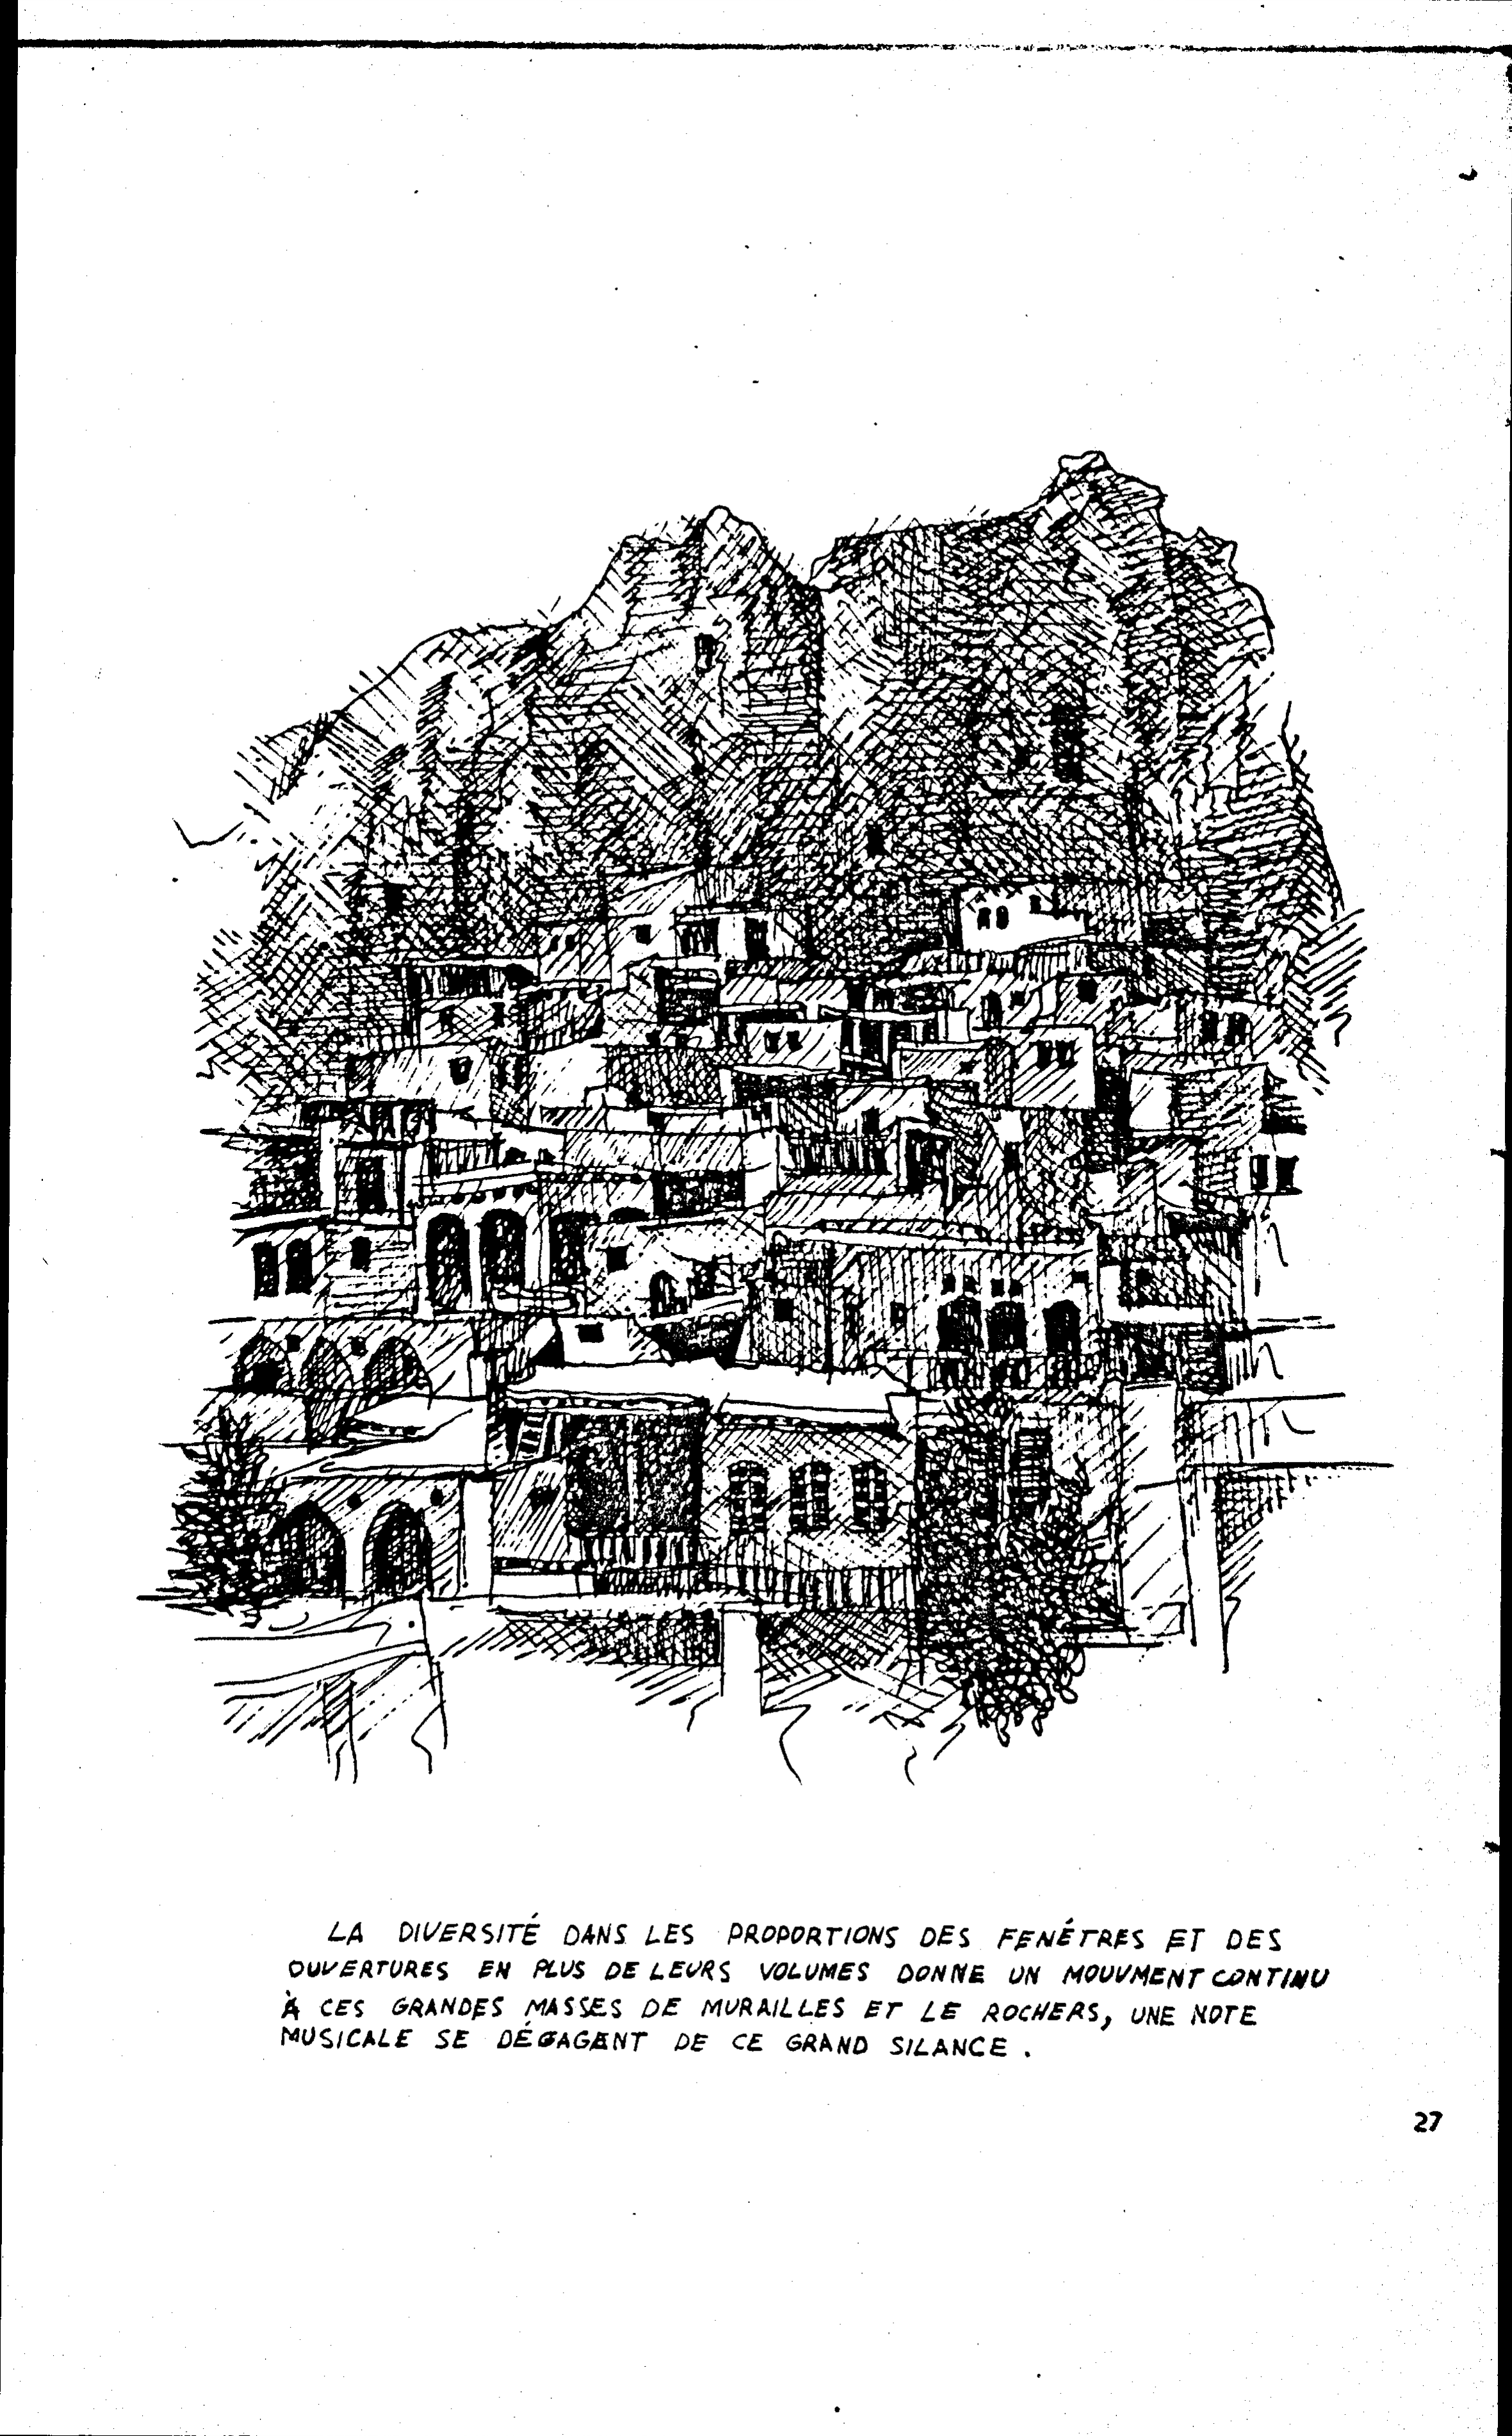 LA DIVERSITÉ DANS LES PROPORTIONS DES FENÉTRES ET DES
OUVERTURES EN PLUS DE LEURS VOLUMES DONNE UN MOUVMENT CONTINU
À CES GRANDES MASSES DE MURAILLES ET LE ROCHERS, UNE NOTE
MUSICALE SE DÉGAGENT DE CE GRAND SILANCE.
27